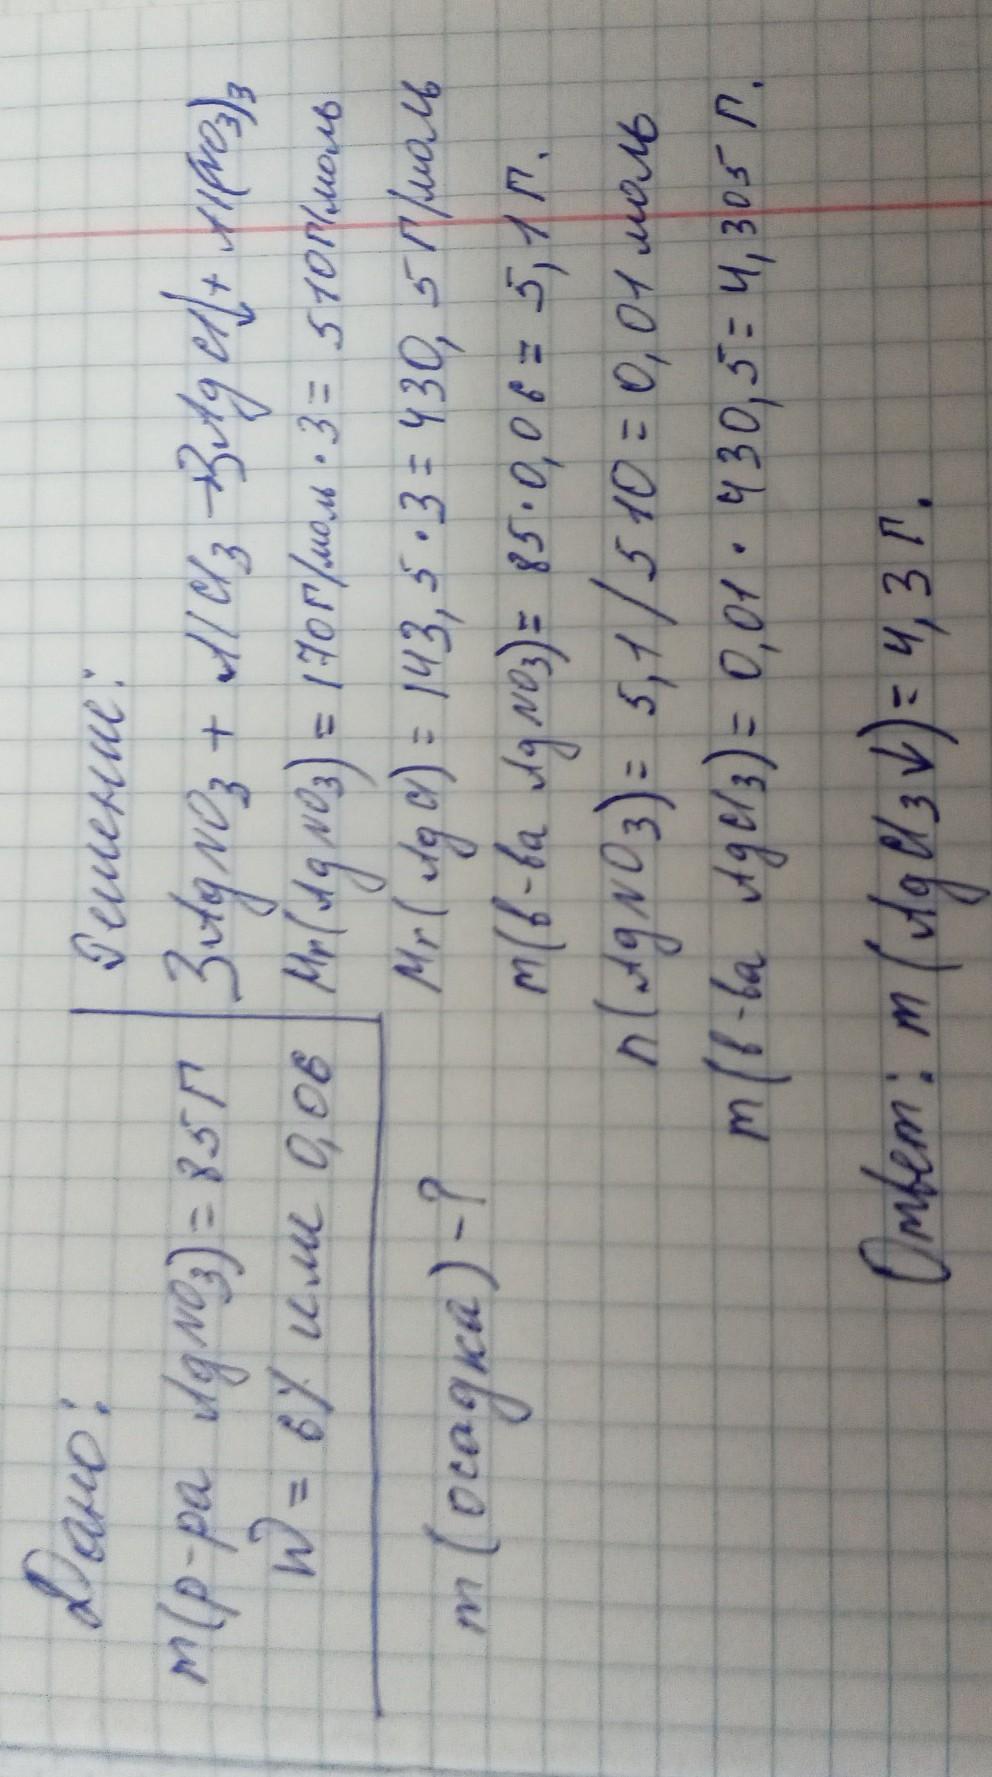 Дано:
m(р-ра AgNO3)=85г
W = 6% или 0,06
m(осадка)-?
Решение:
3AgNO3 + AlCl3 →3AgCl↓+ Al(NO3)3
Mr(AgNO3) = 170г/моль·3= 510г/моль
Mr(AgCl) = 143,5·3= 430,5г/моль
m(в-ва AgNO3)= 85·0,06= 5,1г.
n(AgNO3)= 5,1/510= 0,01моль
m(в-ва AgCl3)= 0,01·430,5= 4,305г.
Ответ: m(AgCl3↓)= 4,3г.